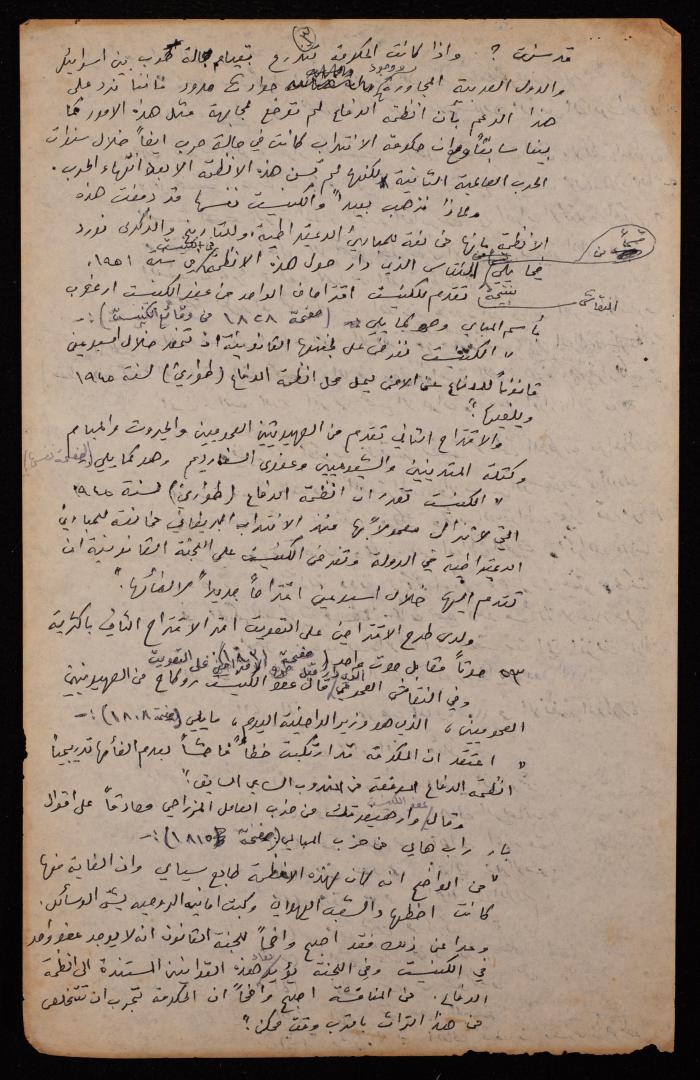 (٣)
قد سنت ؟ واذا كانت الحكومة تتذرع بقيام حالة حرب بين اسرائيل
والدول العربية المجاورة وبوجود حوادث حدود فاننا نرد على
هذا الزعم بأن انظمة الدفاع لم توضع لمجابهة مثل هذه الامور كما
بينا سابقاً وان حكومة الانتداب كانت في حالة حرب ايضاً خلال سنوات
الحرب العالمية الثانية ولكنها لم تسن هذه الانظمة الا بعد انتهاء الحرب .
ولماذا نذهب بعيداً والكنيست نفسها قد دمغت هذه
الانظمة بأنها مخالفة للمبادئ الديمقراطية، وللتاريخ والذكرى نورد
فيما يلي قسماً من النقاش الذي دار حول هذه الانظمة في الكنيست في سنة ١٩٥١،
نتيجة النقاش تقدم للكنيست اقتراحان الواحد من عضو الكنيست
باسم المباي وهو كما يلي (صفحة ١٨٢٨ من وقائع الكنيست) :-
" الكنيست تفرض على لجنتها القانونية ان تحضر خلال اسبوعين
قانوناً للدفاع عن الامن يحل محل انظمة الدفاع (طوارئ) لسنة ١٩٤٥
ويلغيها ".
والاقتراح الثاني تقدم من الصهيونيين العموميين والحيروت والمبام
وكتلة المتدينين والشيوعيين وعضوي السفارديم وهو كما يلي (الصفحة نفسها)
" الكنيست تقرر ان انظمة الدفاع (طوارئ) لسنة ١٩٤٥
التي لا تزال معمولاً بها منذ الانتداب البريطاني مخالفة للمبادئ
الديمقراطية في الدولة وتفرض الكنيست على اللجنة القانونية ان
تقدم اليها خلال اسبوعين اقتراحاً جديداً لالغائها ".
ولدى طرح الاقتراحين على التصويت اقر الاقتراح الثاني باكثرية
٥٣ صوتاً مقابل صوت واحد (صفحة ١٨٣١).
وفي النقاش العمومي الذي دار قبل طرح الاقتراحين على التصويت قال عضو الكنيست روكاح من الصهيونيين
العموميين، الذي هو وزير الداخلية اليوم، ما يلي (صفحة ١٨٠٨) :-
" اعتقد ان الحكومة قد ارتكبت خطأً فاحشاً بعدم الغائها تدريجياً
انظمة الدفاع الموقعة من المندوب السامي السابق ".
وقال عضو الكنيست من حزب العامل المزراحي مصادقاً على اقوال
بار راب هاي من حزب المباي (صفحة ١٨١٥) :-
" من الواضح انه كان لهذه الانظمة طابع سياسي وان الغاية منها
كانت اضطهاد الشعب اليهودي وكبت امانيه الروحية بشتى الوسائل.
وعدا عن ذلك فقد اصبح واضحاً للجنة القانون انه لا يوجد عضو واحد
في الكنيست وفي اللجنة يؤيد بقاء هذه القوانين المستندة الى انظمة
الدفاع. من المناقشة اصبح واضحاً ان الحكومة تجرب ان تتخلص
من هذا التراث باقرب وقت ممكن ".